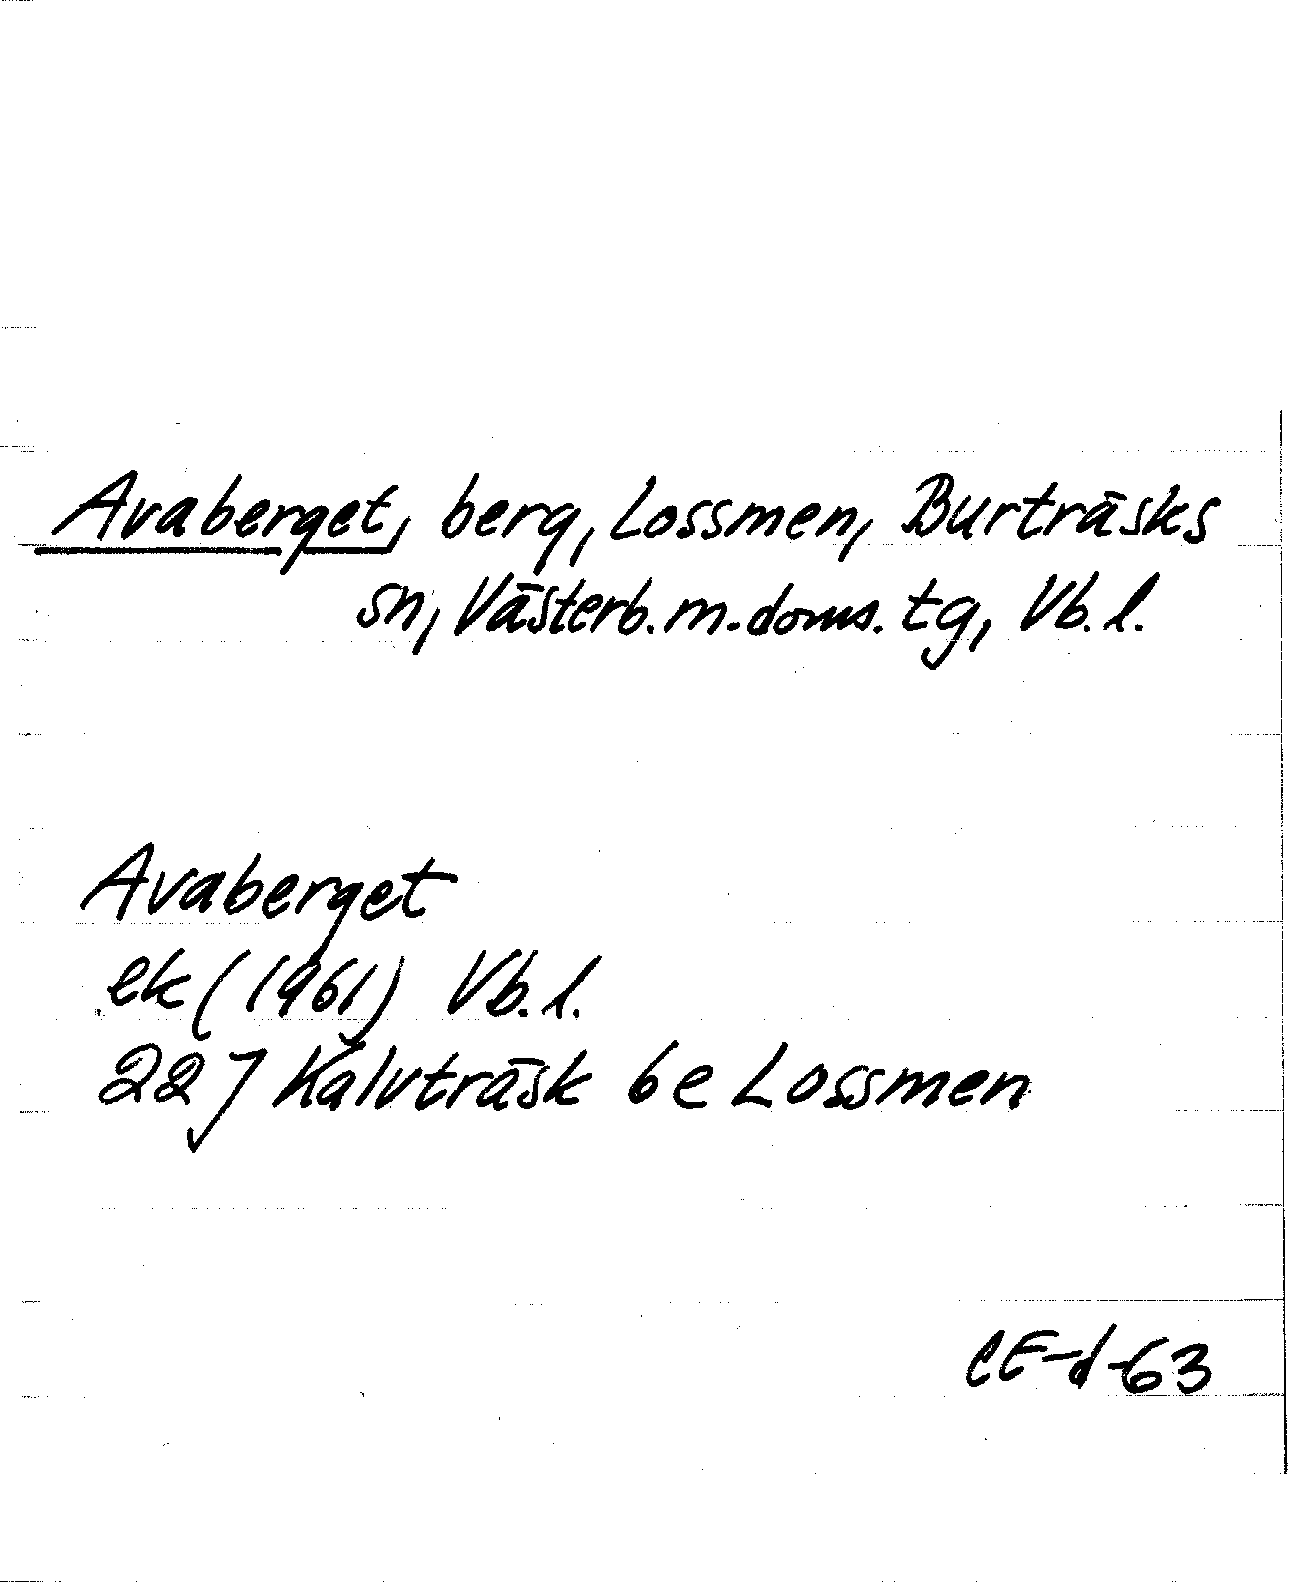 Avaberget, berg, Lossmen, Burträsks
sn, Västerb.m.doms.tg, Vb.l.
Avaberget
ek (1961) Vb.l.
22J Kalvträsk 6e Lossmen
CE-d-63